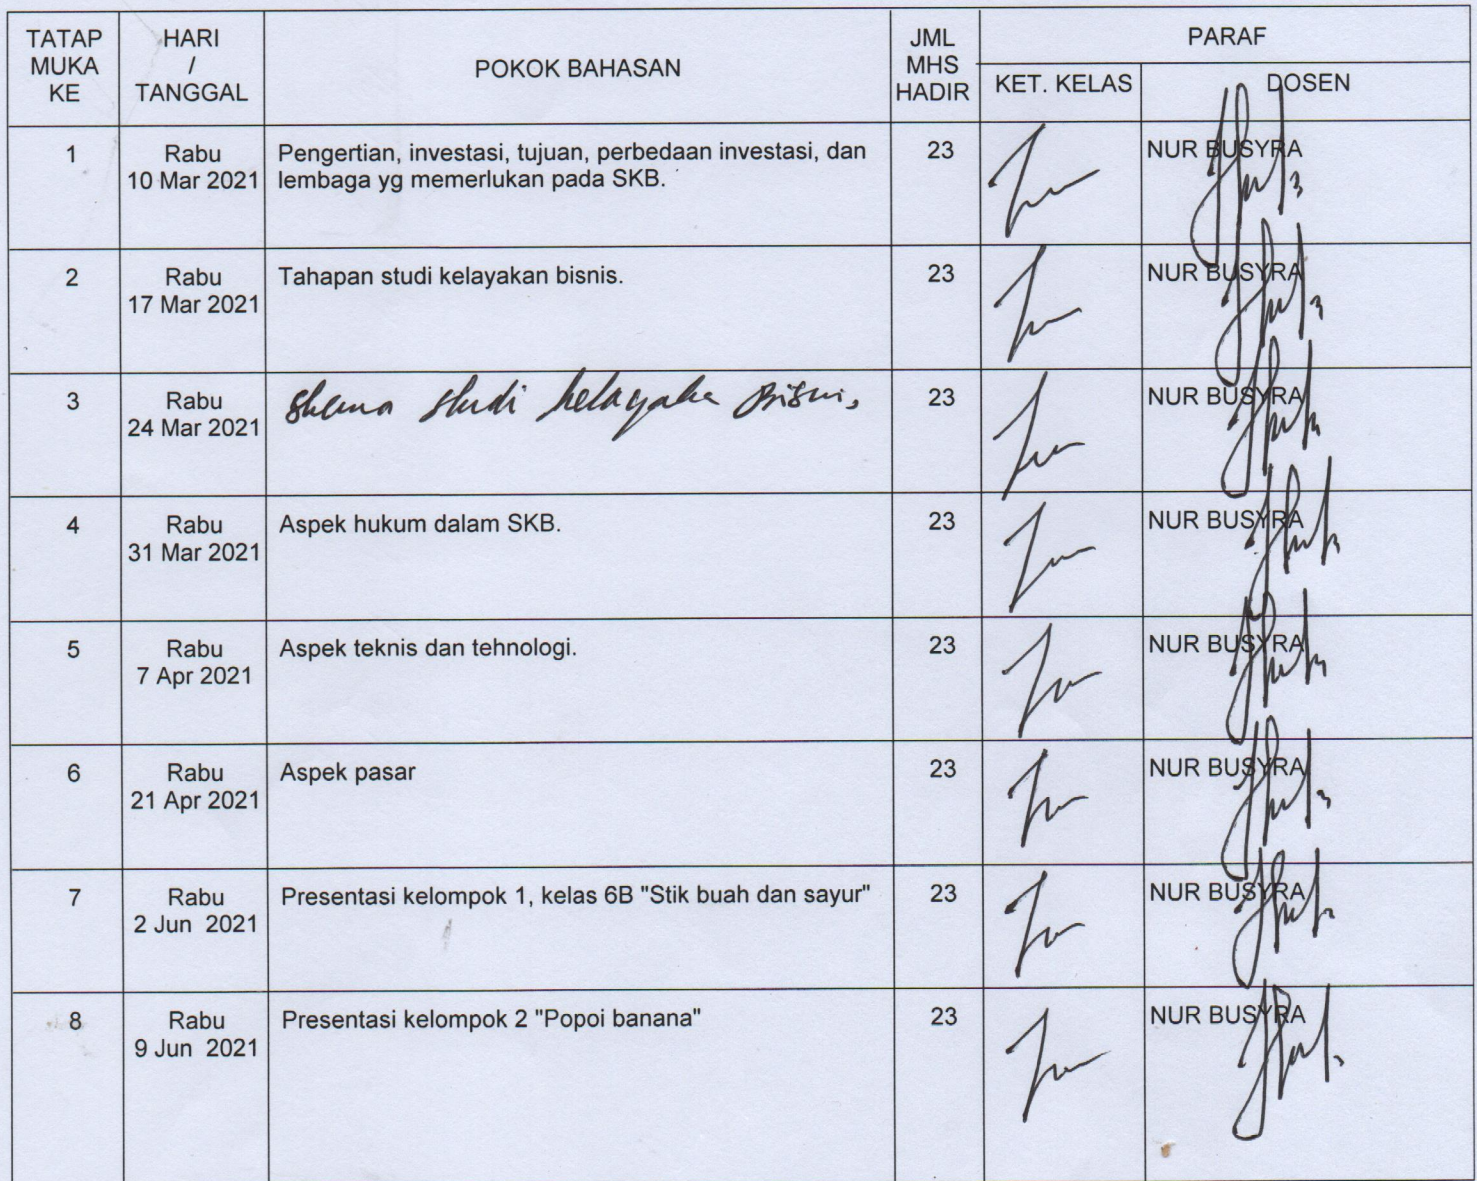 TATAP MUKA KE
HARI / TANGGAL
POKOK BAHASAN
JML MHS HADIR
PARAF
KET. KELAS
DOSEN
1
Rabu
10 Mar 2021
Pengertian, investasi, tujuan, perbedaan investasi, dan
lembaga yg memerlukan pada SKB.
23
NUR BUSYRA
2
Rabu
17 Mar 2021
Tahapan studi kelayakan bisnis.
23
NUR BUSYRA
3
Rabu
24 Mar 2021
studi
23
NUR BUSYRA
4
Rabu
31 Mar 2021
Aspek hukum dalam SKB.
23
NUR BUSYRA
5
Rabu
7 Apr 2021
Aspek teknis dan tehnologi.
23
NUR BUSYRA
6
Rabu
21 Apr 2021
Aspek pasar
23
NUR BUSYRA
7
Rabu
2 Jun 2021
Presentasi kelompok 1, kelas 6B "Stik buah dan sayur"
23
NUR BUSYRA
8
Rabu
9 Jun 2021
Presentasi kelompok 2 "Popoi banana"
23
NUR BUSYRA